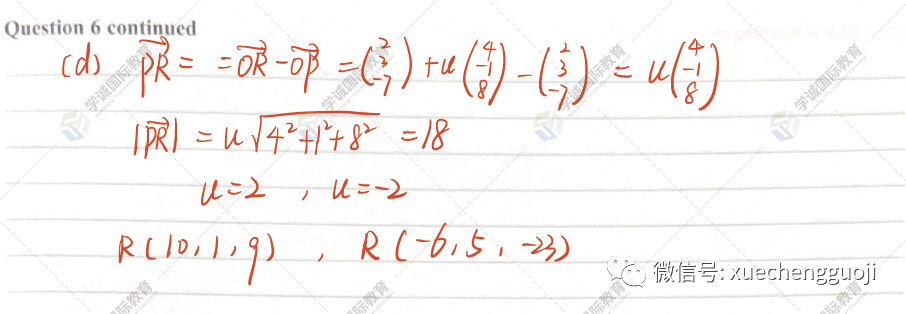 Question 6 continued
(d) $\overrightarrow{PR} = = \overrightarrow{OR} - \overrightarrow{OP} = \begin{pmatrix} 2 \\ 3 \\ -7 \end{pmatrix} + u \begin{pmatrix} 4 \\ -1 \\ 8 \end{pmatrix} - \begin{pmatrix} 2 \\ 3 \\ -7 \end{pmatrix} = u \begin{pmatrix} 4 \\ -1 \\ 8 \end{pmatrix}$
$|\overrightarrow{PR}| = u\sqrt{4^2+1^2+8^2} = 18$
u=2 , u=-2
R(10,1,9) , R(-6,5,-23)
微信号: xuechengguoji
学诚国际教育